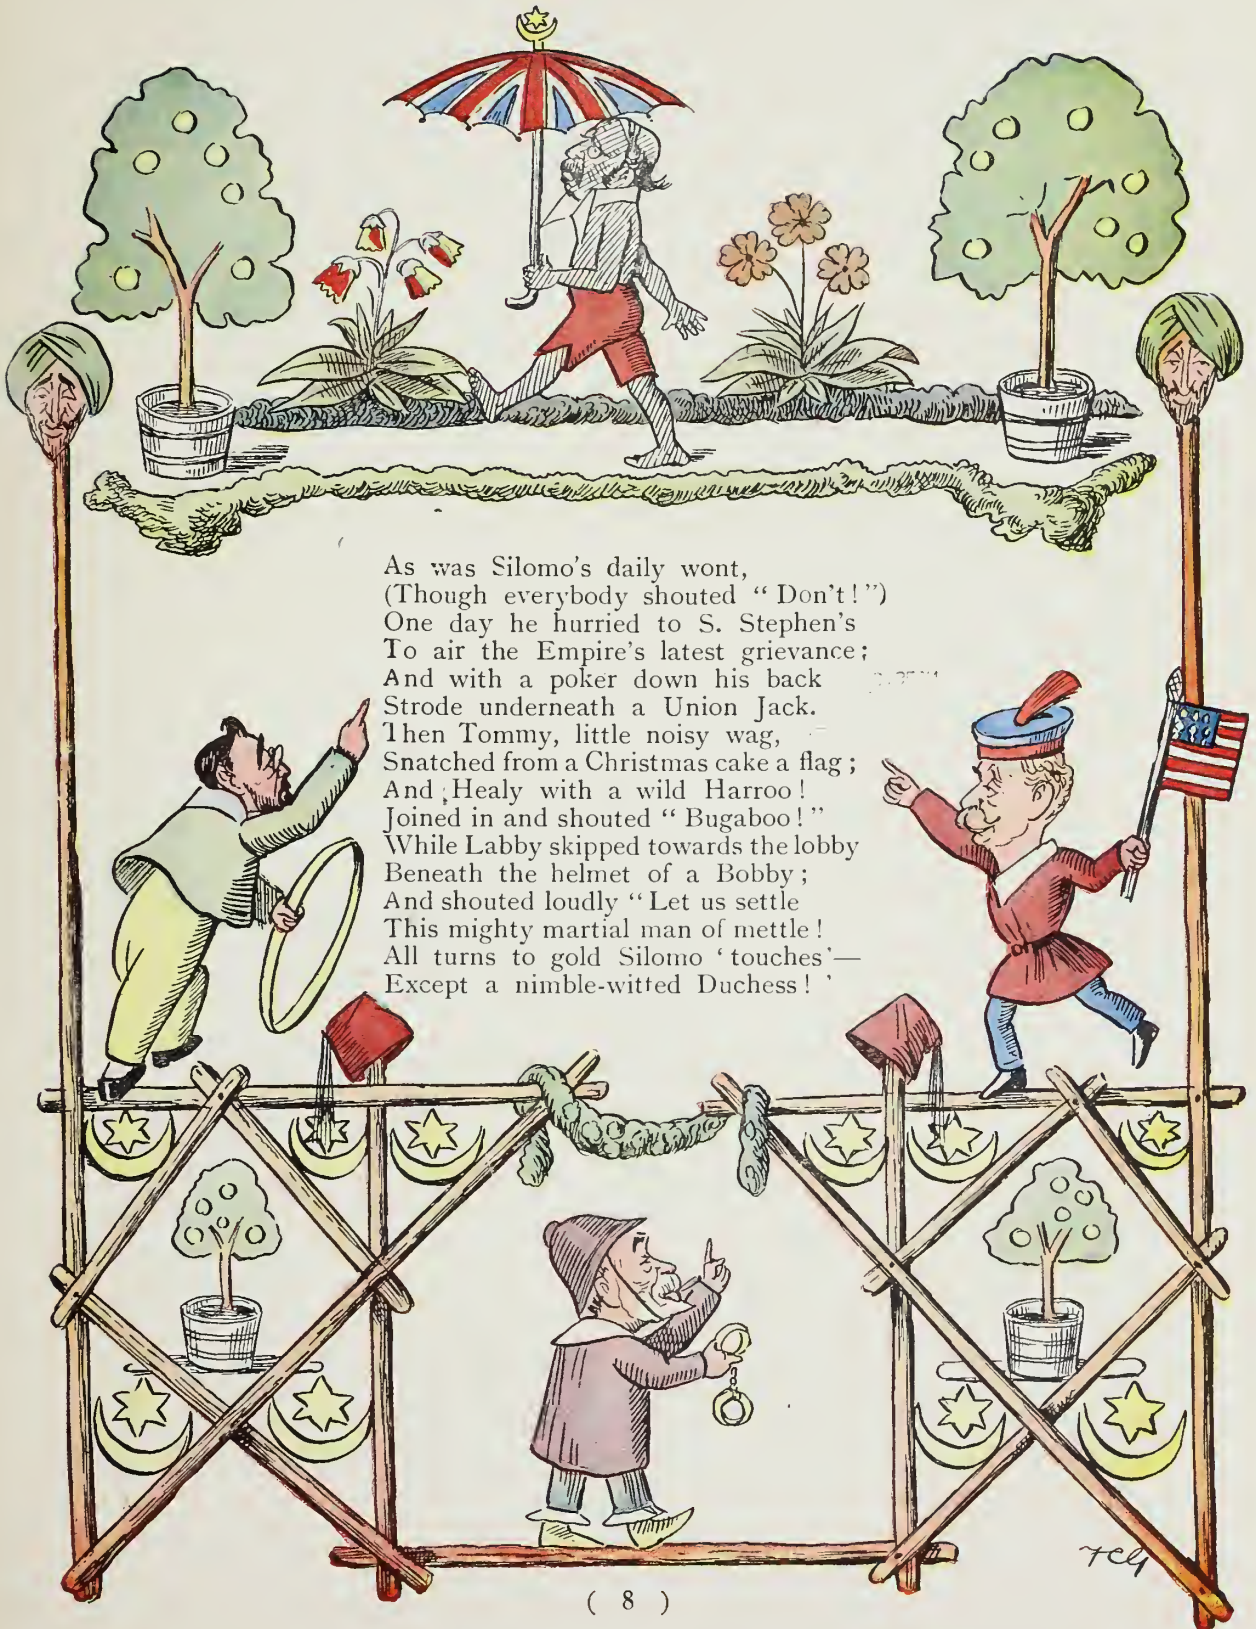 As was Silomo's daily wont,
(Though everybody shouted “ Don't ! ”)
One day he hurried to S. Stephen's
To air the Empire's latest grievance ;
And with a poker down his back
Strode underneath a Union Jack.
Then Tommy, little noisy wag,
Snatched from a Christmas cake a flag ;
And Healy with a wild Harroo !
Joined in and shouted “ Bugaboo ! ”
While Labby skipped towards the lobby
Beneath the helmet of a Bobby ;
And shouted loudly “ Let us settle
This mighty martial man of mettle !
All turns to gold Silomo ‘ touches ’—
Except a nimble-witted Duchess ! ’
FCG
( 8 )